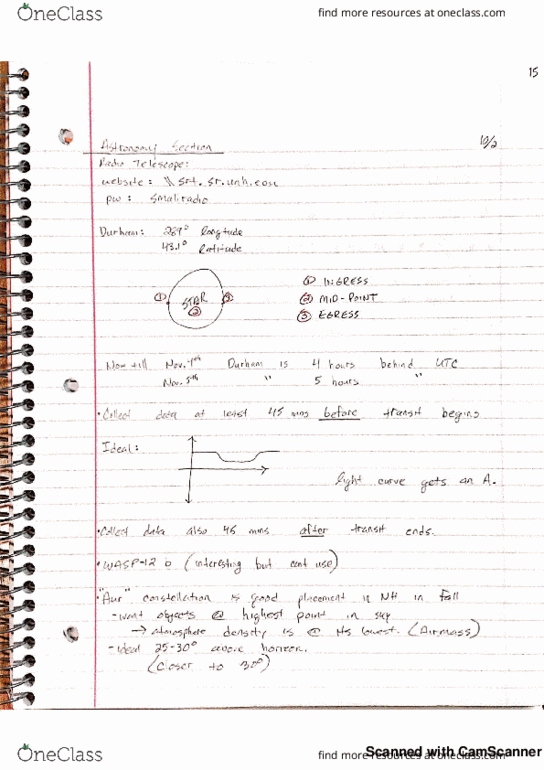 OneClass
find more resources at oneclass.com
15
Astronomy Section
10/2
Radio Telescope:
website: \\ srt.sr.unh.edu
pw: smallradio
Durham: 289° longtude
43.1° latitude
① STAR ② ③
① INGRESS
② MID-POINT
③ EGRESS
Now till Nov. 4th Durham is 4 hours behind UTC
Nov. 5th " 5 hours "
• Collect data at least 45 mins before transit begins
Ideal:
light curve gets an A.
• Collect data also 45 mins after transit ends.
• WASP-12 b (interesting but cant use)
• "Aur" constellation is good placement in NH in fall
- want objects @ highest point in sky
→ atmosphere density is @ its lowest. (Airmass)
- Ideal 25-30° above horizon.
(closer to 30°)
OneClass
find more resources at oneclass.com
Scanned with CamScanner